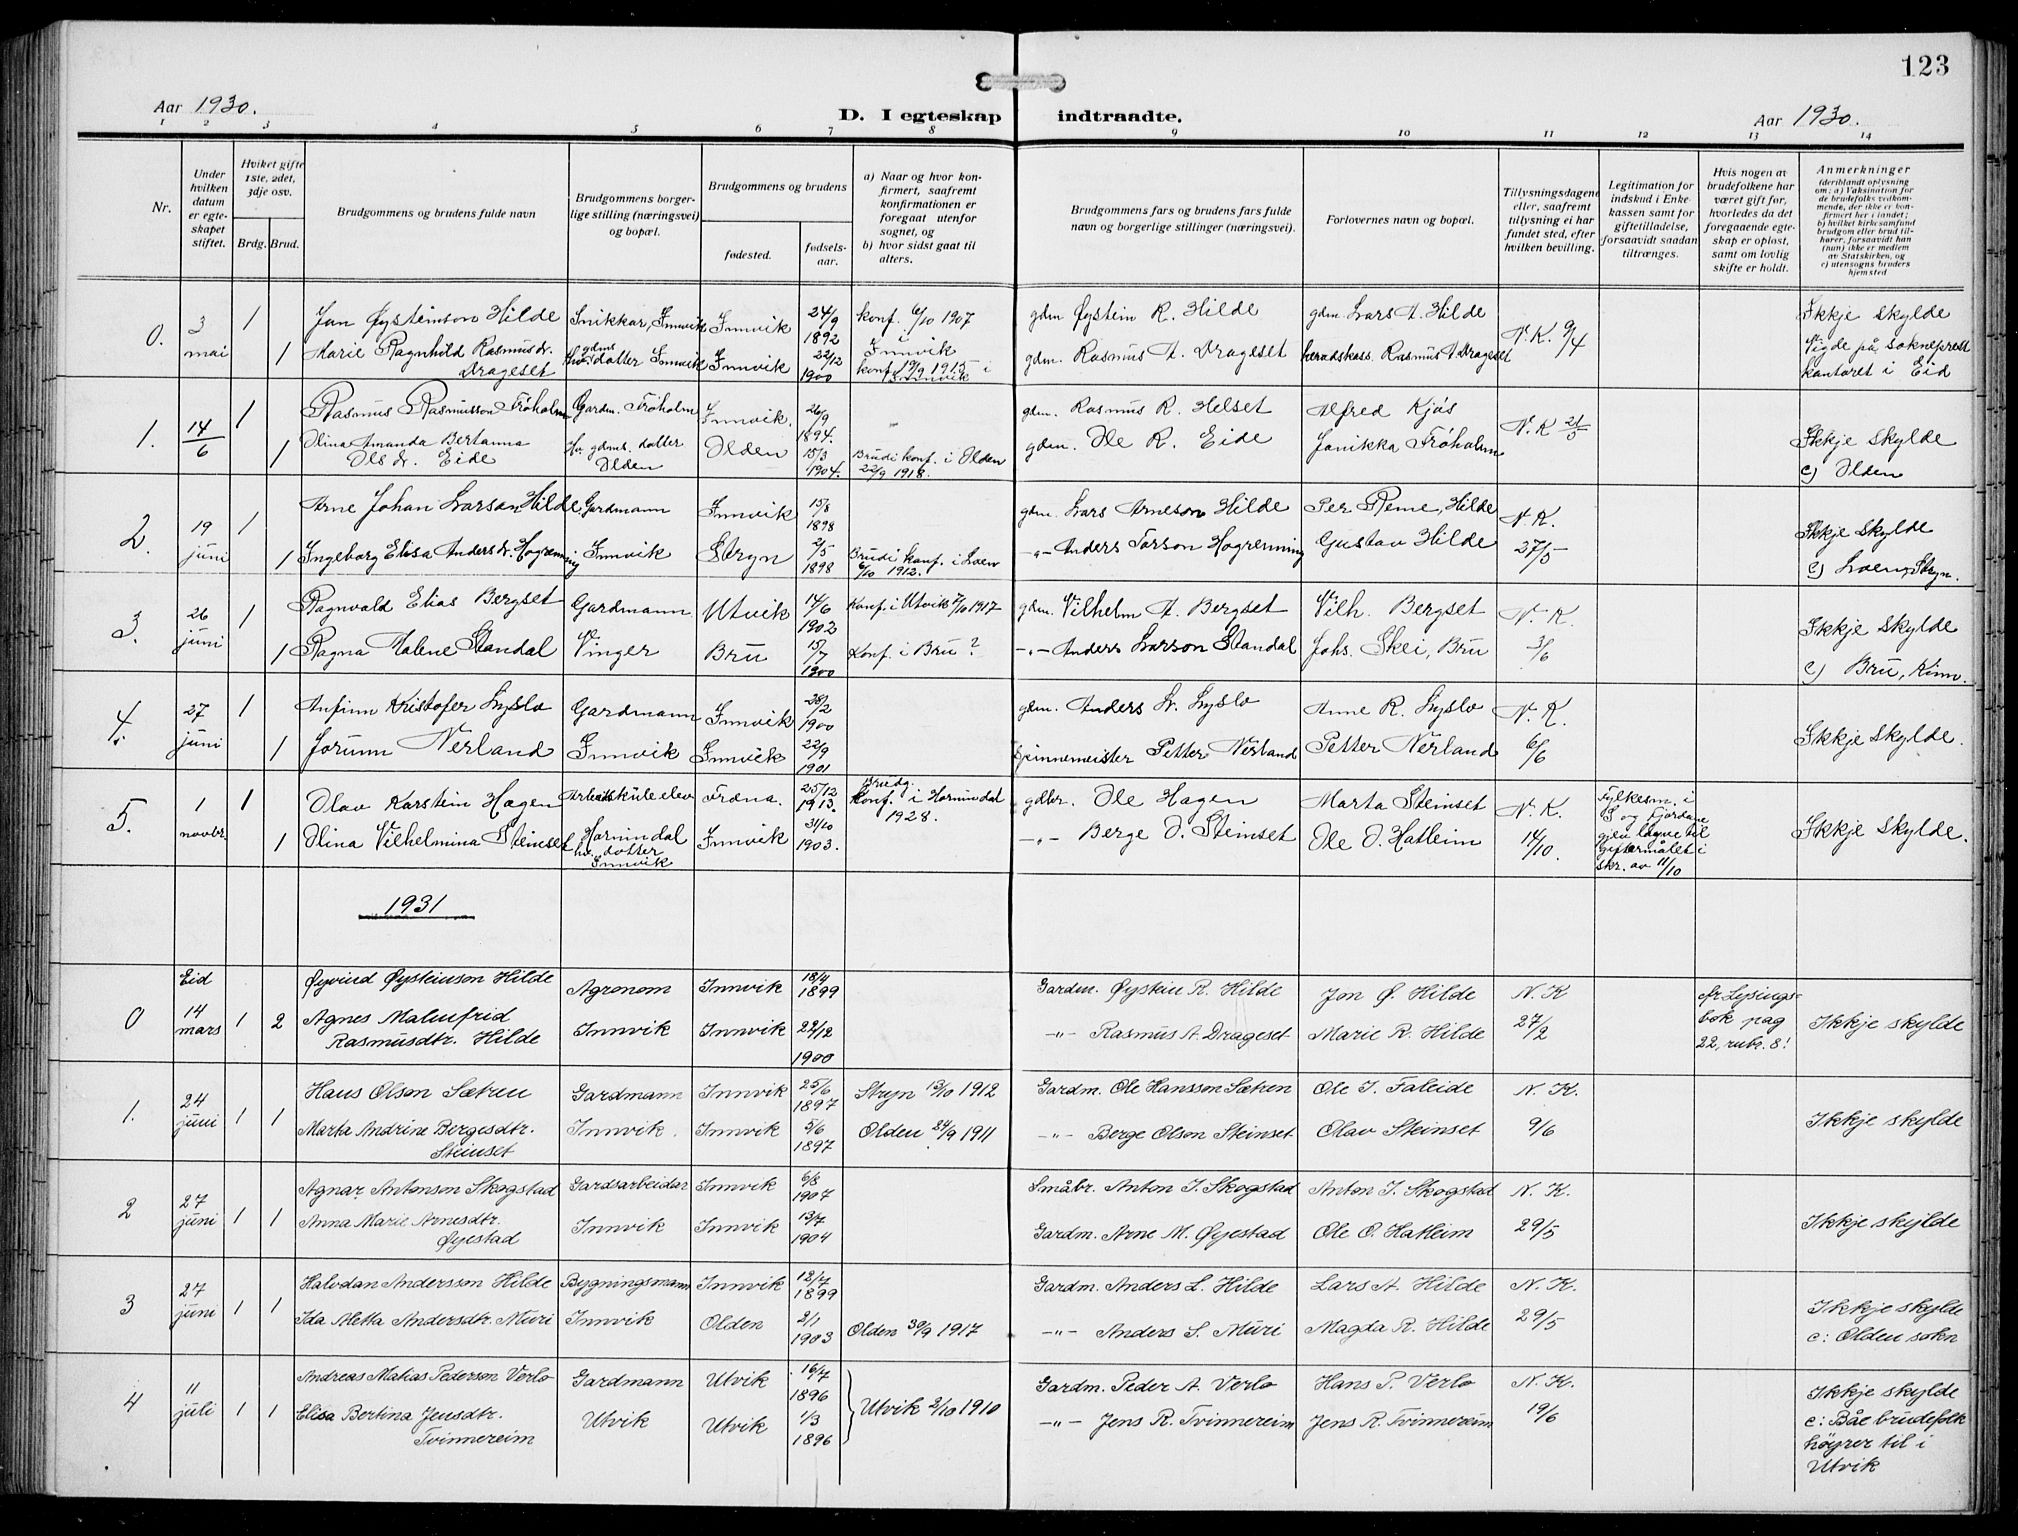 123
Aar 1930.
D. I egteskap indtraadte.
Aar 1930.
1 2 3 4 5 6 7 8 9 10 11 12 13 14
Nr.
Under hvilken datum er egteskapet stiftet.
Hviket gifte 1ste, 2det, 3dje osv.
Brdg. Brud.
Brudgommens og brudens fulde navn
Brudgommens borgerlige stilling (næringsvei) og bopæl.
Brudgommens og brudens
fødested.
fødselsaar.
a) Naar og hvor konfirmert, saafremt konfirmationen er foregaat utenfor sognet, og
b) hvor sidst gaat til alters.
Brudgommens fars og brudens fars fulde navn og borgerlige stillinger (næringsvei).
Forlovernes navn og bopæl.
Tillysningsdagene eller, saafremt tillysning ei har fundet sted, efter hvilken bevilling.
Legitimation for indskud i Enkekassen samt for giftetilladelse, forsaavidt saadan tiltrænges.
Hvis nogen av brudefolkene har været gift før, hvorledes da det foregaaende egteskap er opløst, samt om lovlig skifte er holdt.
Anmerkninger (deriblandt oplysning om: a) Vaksination for de brudefolks vedkommende, der ikke er konfirmert her i landet; b) hvilket kirkesamfund brudgom eller brud tilhører, forsaavidt han (hun) ikke er medlem av Statskirken, og c) utensogns bruders hjemsted
0. 3 mai 1 Jon Øysteinson Hilde Snikkar, Innvik Innvik 24/9 1892 konf. 6/10 1907 Innvik gdm Øystein R. Hilde gdm. Lars A. Hilde N. K. 9/4 Ikkje skylde
1 Marie Ragnhild Rasmusdr. Drageset gdms dotter Innvik Innvik 22/12 1900 konf. 19/9 1915 i Innvik gdm. Rasmus A. Drageset heradskass. Rasmus A Drageset Vigde på sokneprestkontoret i Eid
1. 14/6 1 Rasmus Rasmusson Frøholm Gardm. Frøholm Innvik. 26/9 1894. gdm. Rasmus R. Helset Alfred Kjøs N. K 21/5 Ikkje skylde
1 Olina Amanda Bertanna Olsdr. Eide Hv. gdms. dotter Olden Olden 15/3 1904. Brudi konf. i Olden 22/9 1918. gdm. Ole R. Eide Janikka Frøholm c) Olden
2. 19 juni 1 Arne Johan Larson Hilde Gardmann Innvik 15/8 1898 gdm. Lars Arneson Hilde Per Reme, Hilde N. K. Ikkje skylde
1 Ingeborg Elisa Andersdr. Hogrenning Innvik Stryn 21/5 1898 Brudi konf. i Loen 6/10 1912. -"- Anders Larson Hogrenning Gustav Hilde 27/5 c) Loen, Stryn.
3. 26 juni 1 Ragnvald Elias Bergset Gardmann Utvik 14/6 1902 Konf. i Utvik 7/10 1917 gdm. Vilhelm A. Bergset Vilh. Bergset N. K. Ikkje skylde
1 Ragna Malene Standal Vinger Bru 15/7 1900 Konf. i Bru? -"- Anders Larson Standal Johs. Skei, Bru 3/6 c) Bru, Kinn.
4. 27 juni 1 Anfinn Kristofer Lyslo Gardmann Innvik 28/2 1900 gdm. Anders L. Lyslo Anne R. Lyslo N. K. Ikkje skylde.
1 Jorunn Nerland Innvik Innvik 22/9 1901 Spinnemeister Petter Nerland Petter Nerland 6/6
5. 1 novbr. 1 Olav Karstein Hagen Arbeidskule elev Hornindal Fræna. 25/12 1913. Brudg. konf. i Hornindal 1928. gdbr. Ole Hagen Marta Steinset N. K. Fylkesm. i S og Fjordane
1 Olina Vilhelmina Steinset hv. dotter Innvik Innvik 31/10 1903. -"- Berge O. Steinset Ole O. Hatleim 14/10. gjev løyve til giftermålet i skr. av 11/10 Ikkje skylde.
1931
0 Eid 14 mars 1 2 Øyvind Øysteinson Hilde Agronom Innvik 18/4 1899 Gardm. Øystein R. Hilde Jon Ø. Hilde N. K cfr Lysingsbok pag 22, rubr. 8! Ikkje skylde
Agnes Malmfrid Rasmusdtr. Hilde Innvik Innvik 22/12 1900 -"- Rasmus A. Drageset Marie R. Hilde 27/2
1. 24 juni 1 1 Hans Olson Sætren Gardmann Innvik 25/6 1897 Stryn 13/10 1912 Gardm. Ole Hansson Sætren Ole I. Faleide N. K. Ikkje skylde
Marta Andrine Bergesdtr. Steinset Innvik. Innvik 5/6 1897 Olden 24/9 1911 -"- Berge Olson Steinset Olav Steinset 9/6
2 27 juni 1 1 Agnar Antonson Skogstad Gardsarbeidar Innvik 6/8 1907 Småbr. Anton I. Skogstad Anton I. Skogstad N. K. Ikkje skylde
Anna Marie Arnesdtr. Øyestad Innvik Innvik 13/7 1904 Gardm. Arne M. Øyestad Ole O. Hatleim 29/5
3 27 juni 1 1 Halvdan Andersson Hilde Bygningsmann Innvik 12/7 1899 Gardm. Anders L. Hilde Lars A. Hilde N. K. Ikkje skylde
Ida Metta Andersdtr. Muri Innvik Olden 2/1 1903 Olden 30/9 1917 -"- Anders S. Muri Magda R. Hilde 29/5 c: Olden sokn
4 11 juli 1 1 Andreas Matias Pederson Verlo Gardmann Utvik 16/7 1896 Utvik 2/10 1910 Gardm. Peder A. Verlo Hans P. Verlo N. K. Ikkje skylde
Elisa Bertina Jensdtr. Tvinnereim Utvik Utvik 1/3 1896 -"- Jens R. Tvinnereim Jens R. Tvinnereim 19/6 c: Båe brudefolk høyrer til i Utvik